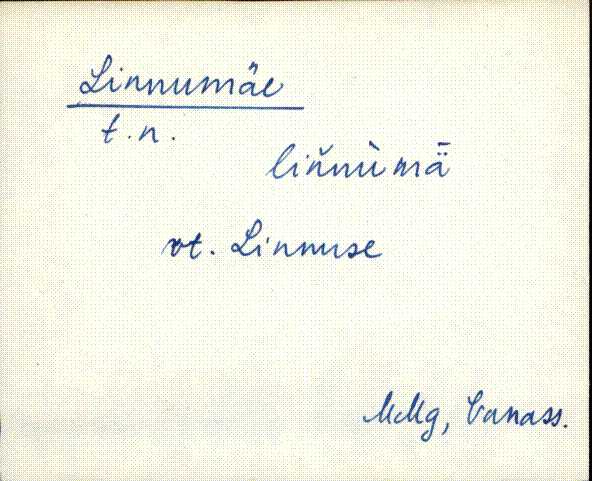 Linnumäe
t.n.
liňnùmǟ
vt. Linnuse
MMg, Vanass.